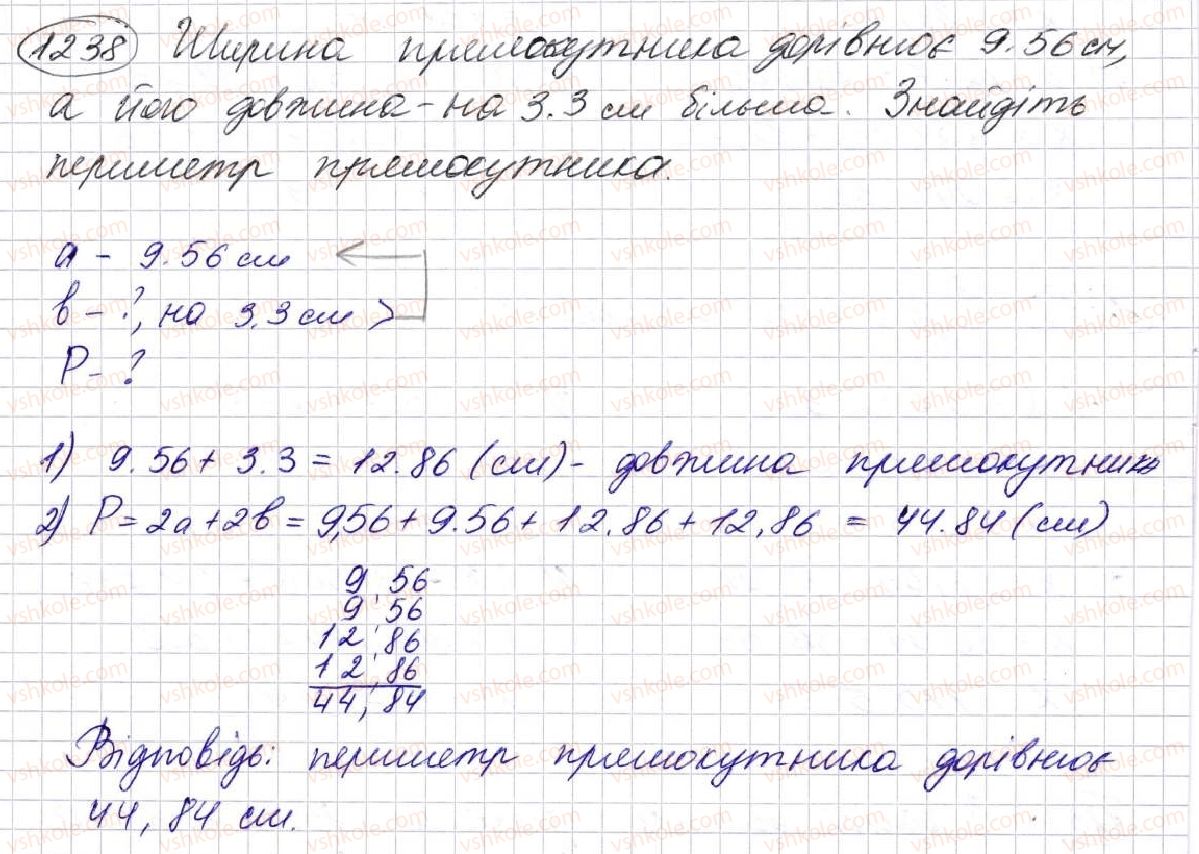 1238 Ширина прямокутника дорівнює 9.56 см,
а його довжина - на 3.3 см більша. Знайдіть
периметр прямокутника.
a - 9.56 см
b - ?, на 3.3 см >
P - ?
1) 9.56 + 3.3 = 12.86 (см) - довжина прямокутника
2) P = 2a + 2b = 9,56 + 9.56 + 12.86 + 12,86 = 44.84 (см)
9,56
9,56
12,86
12,86
44,84
Відповідь: периметр прямокутника дорівнює
44,84 см.